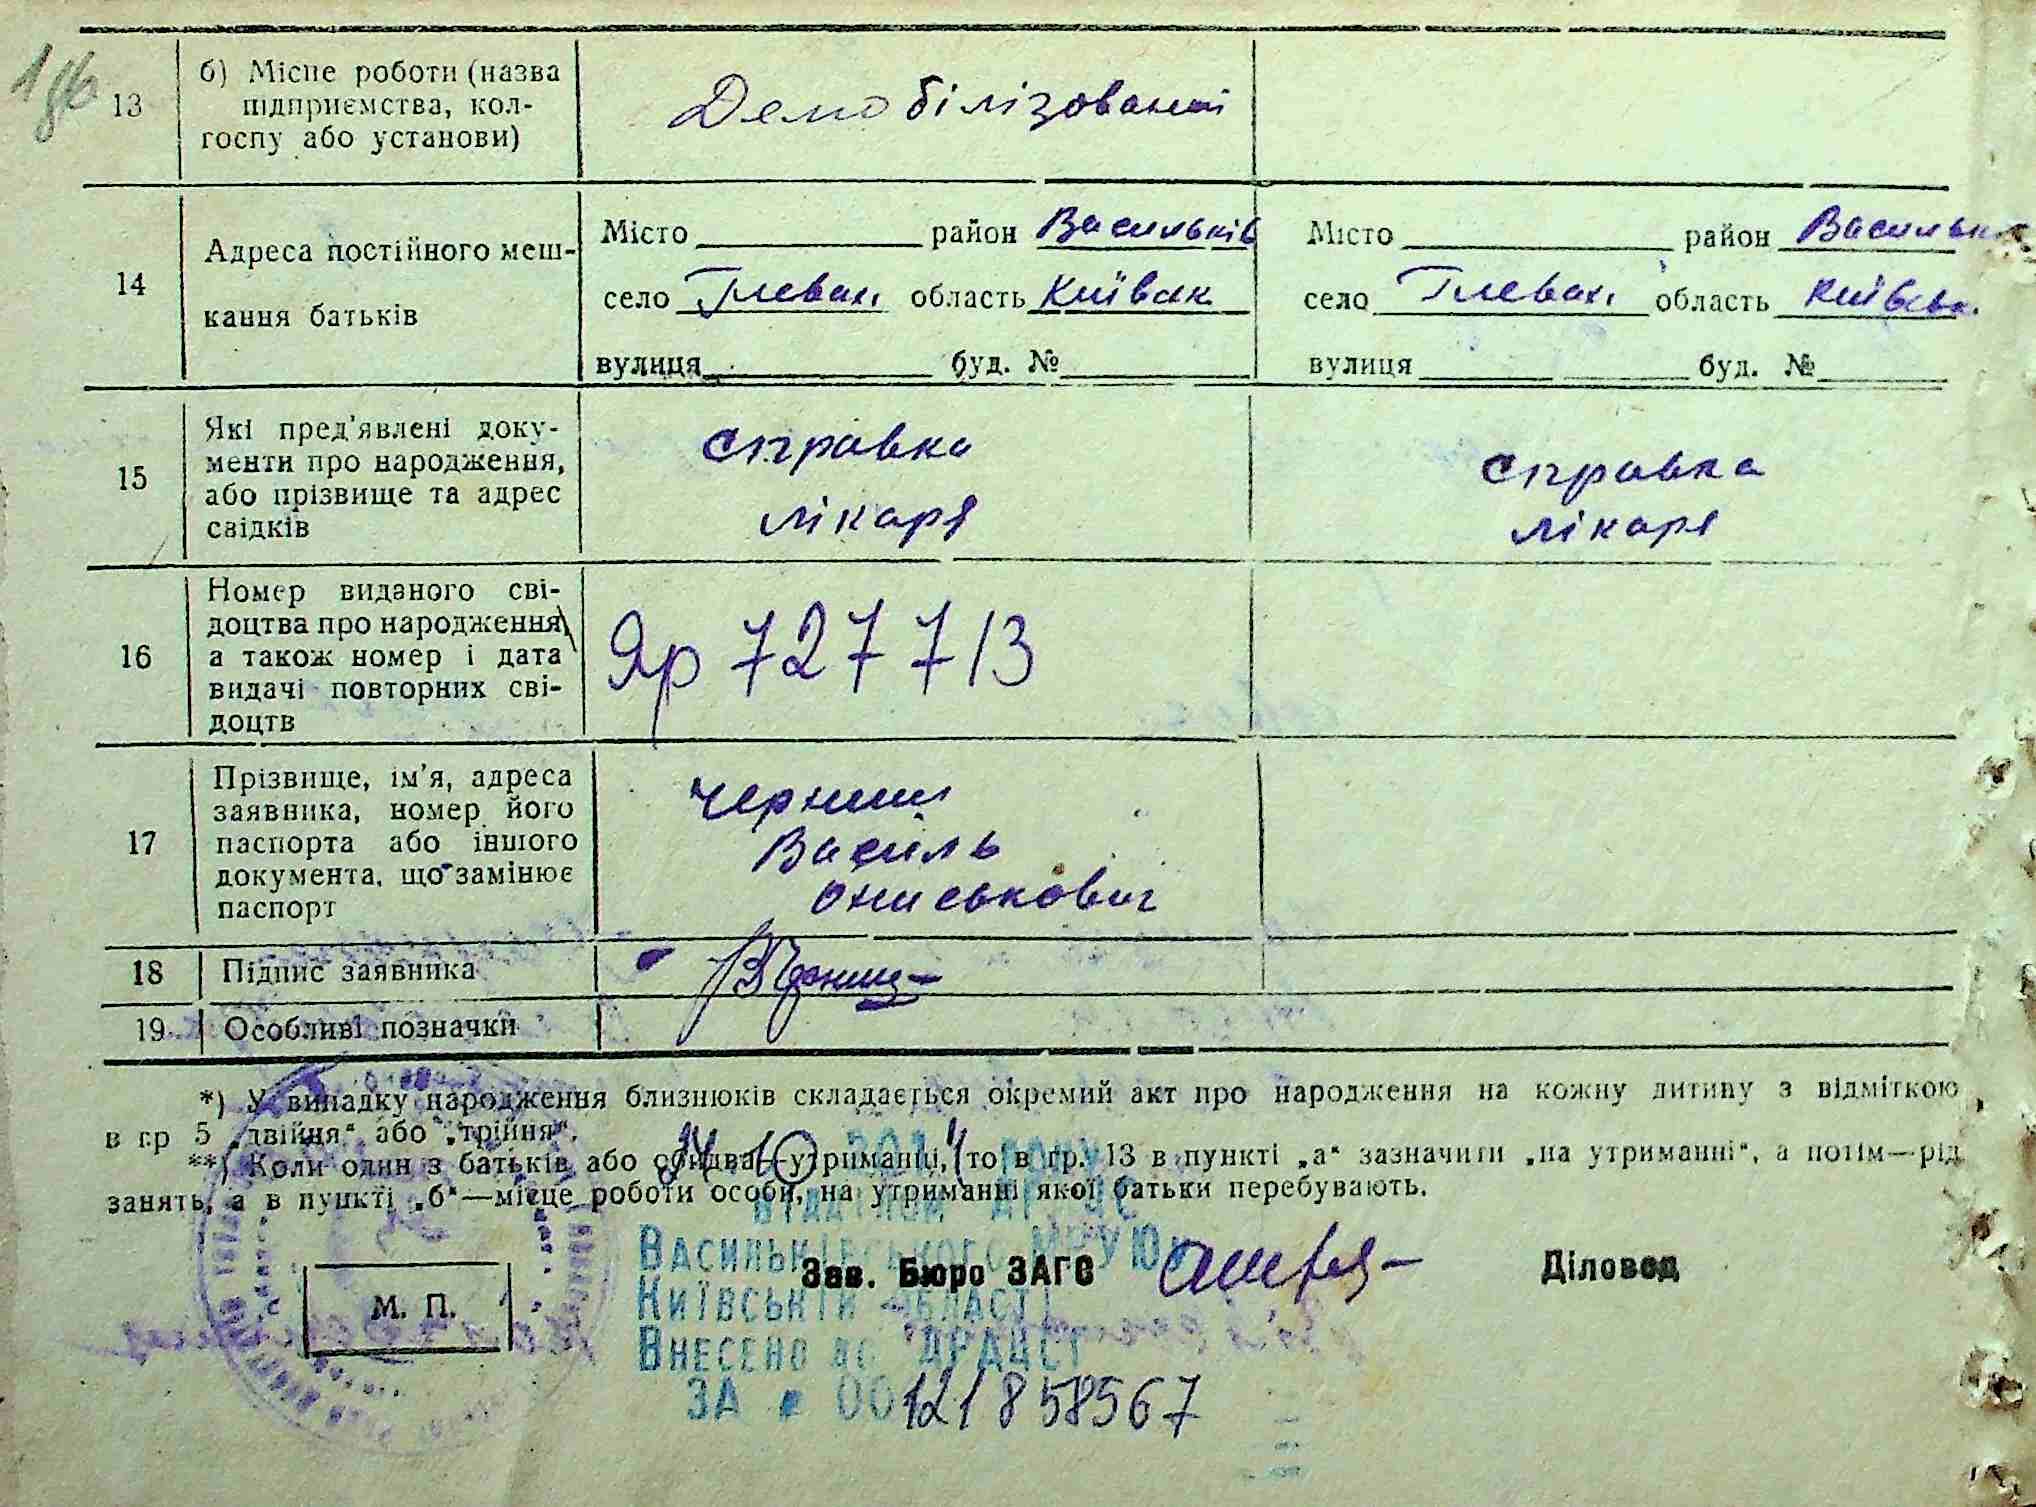 13
б) Місце роботи (назва
підприємства, кол-
госпу або установи)
Демобілізований
14
Адреса постійного меш-
кання батьків
Місто район Васильків
село Глевах. область Київськ
вулиця буд. №
Місто район Васильк
село Глевах. область Київськ.
вулиця буд. №
15
Які пред'явлені доку-
менти про народження,
або прізвище та адрес
свідків
справка
лікаря
справка
лікаря
16
Номер виданого сві-
доцтва про народження
а також номер і дата
видачі повторних сві-
доцтв
Яр 727713
17
Прізвище, ім'я, адреса
заявника, номер його
паспорта або іншого
документа, що замінює
паспорт
Черниш
Василь
Ониськович
18
Підпис заявника
19
Особливі позначки
*) У випадку народження близнюків складається окремий акт про народження на кожну дитину з відміткою
в гр 5 „двійня“ або „трійня“.
**) Коли один з батьків або обидва—утриманці, то в гр. 13 в пункті „а“ зазначити „на утриманні“, а потім—рід
занять, а в пункті „б“—місце роботи особи, на утриманні якої батьки перебувають.
Васильківського МРУЮ
Зав. Бюро ЗАГС
Діловод
Київській області
М. П.
Внесено до ДРАЦСГ
За № 00121858567